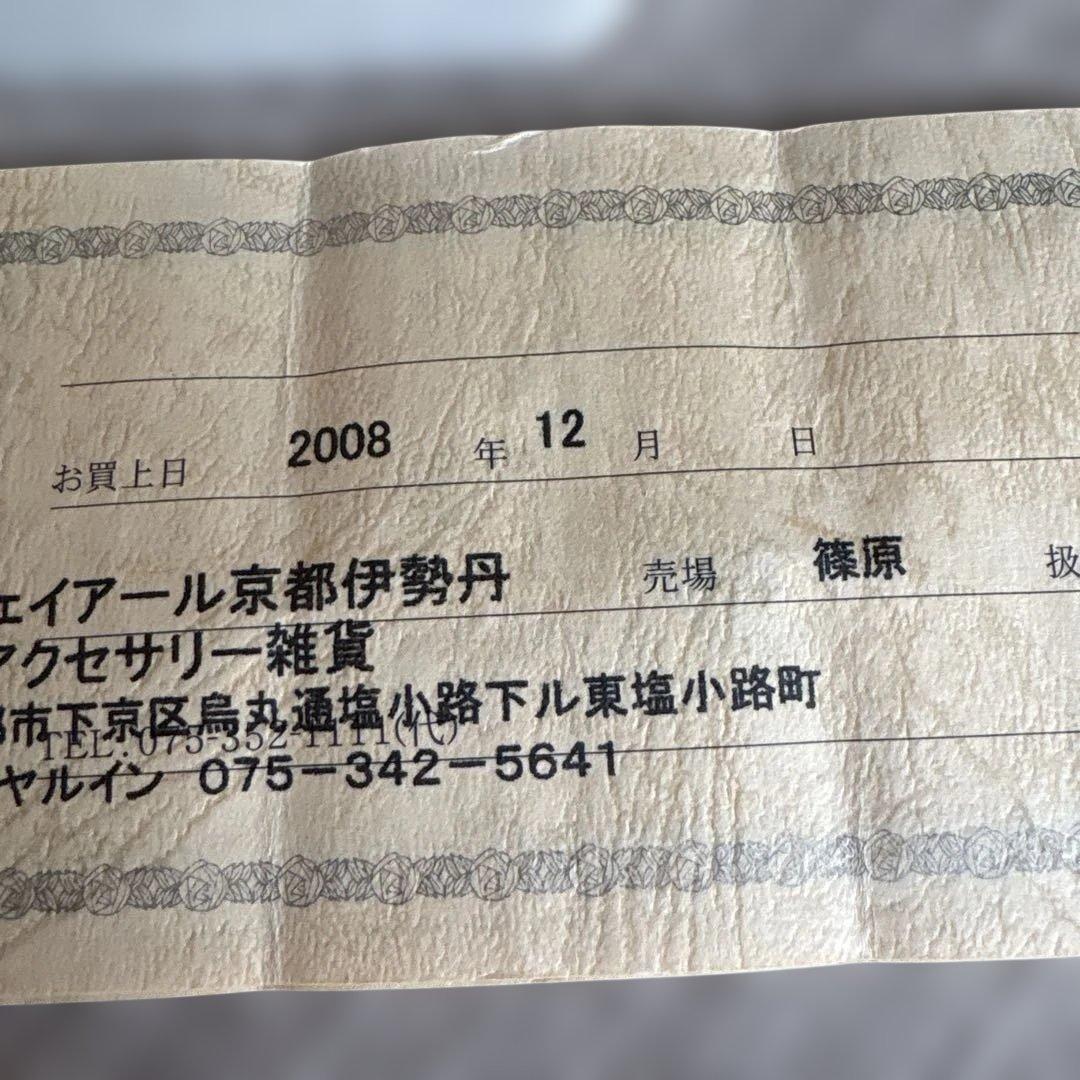 お買上日 2008 年 12 月 日
ェイアール京都伊勢丹 売場 篠原 扱
アクセサリー雑貨
都市下京区烏丸通塩小路下ル東塩小路町
TEL.075-352-1111(代)
ヤルイン 075-342-5641